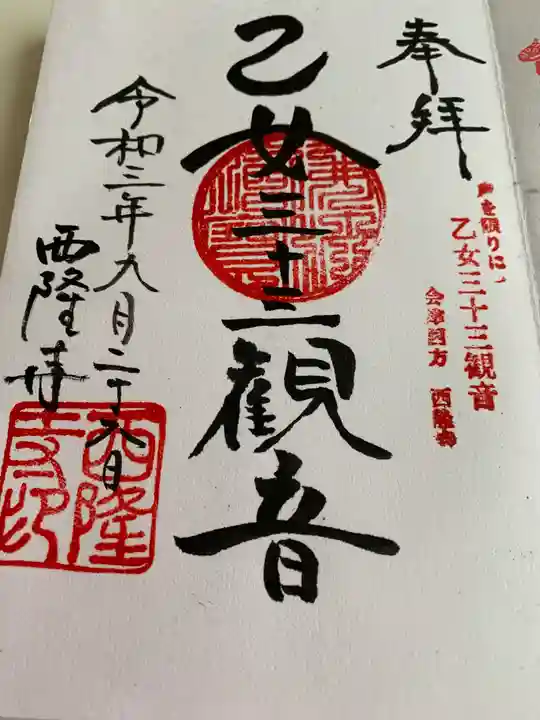 奉拝
声を限りに
乙女三十三観音
会津西方 西隆寺
乙女三十三観音
令和三年九月二十八日
西隆寺
西隆寺印